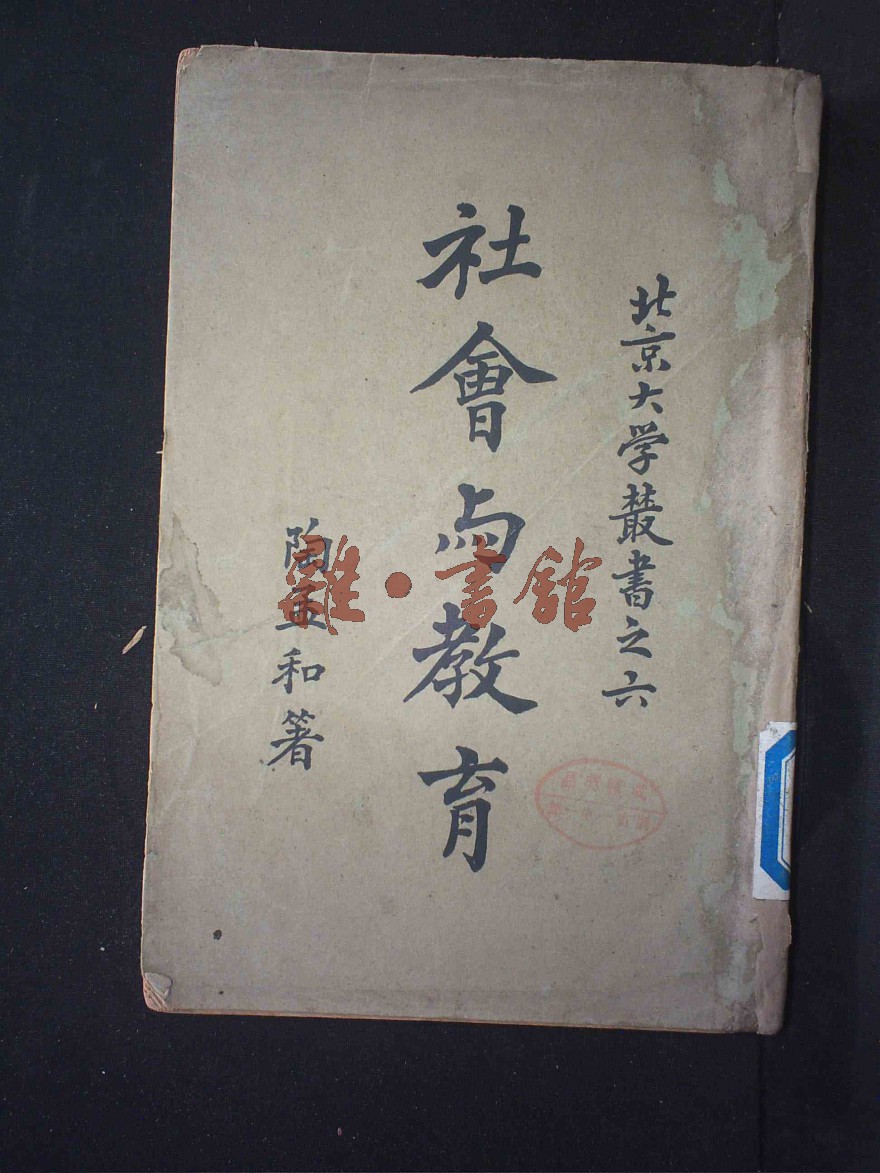 北京大学叢書之六
社會与教育
陶孟和著
雜·書館